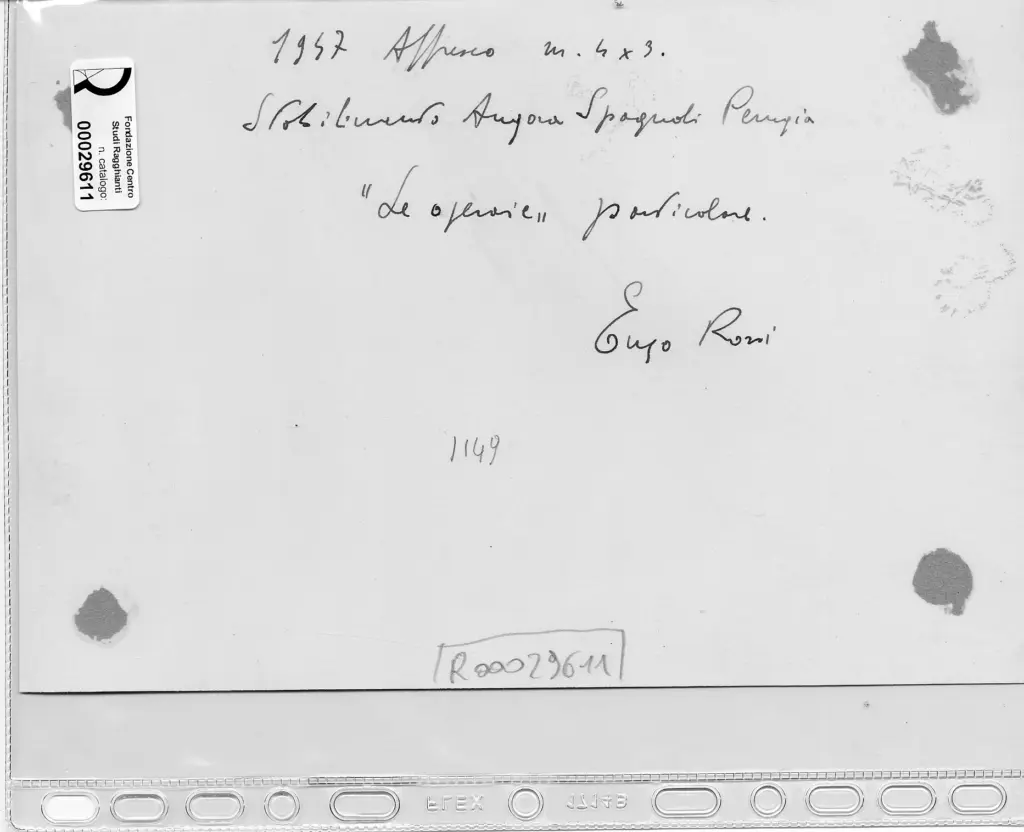 1947 Affresco m. 4 x 3.
Stabilimento Angora Spagnoli Perugia
"Le operaie" particolare.
Enzo Rossi
1149
R00029611
Fondazione Centro
Studi Ragghianti
n. catalogo:
00029611
FLEX